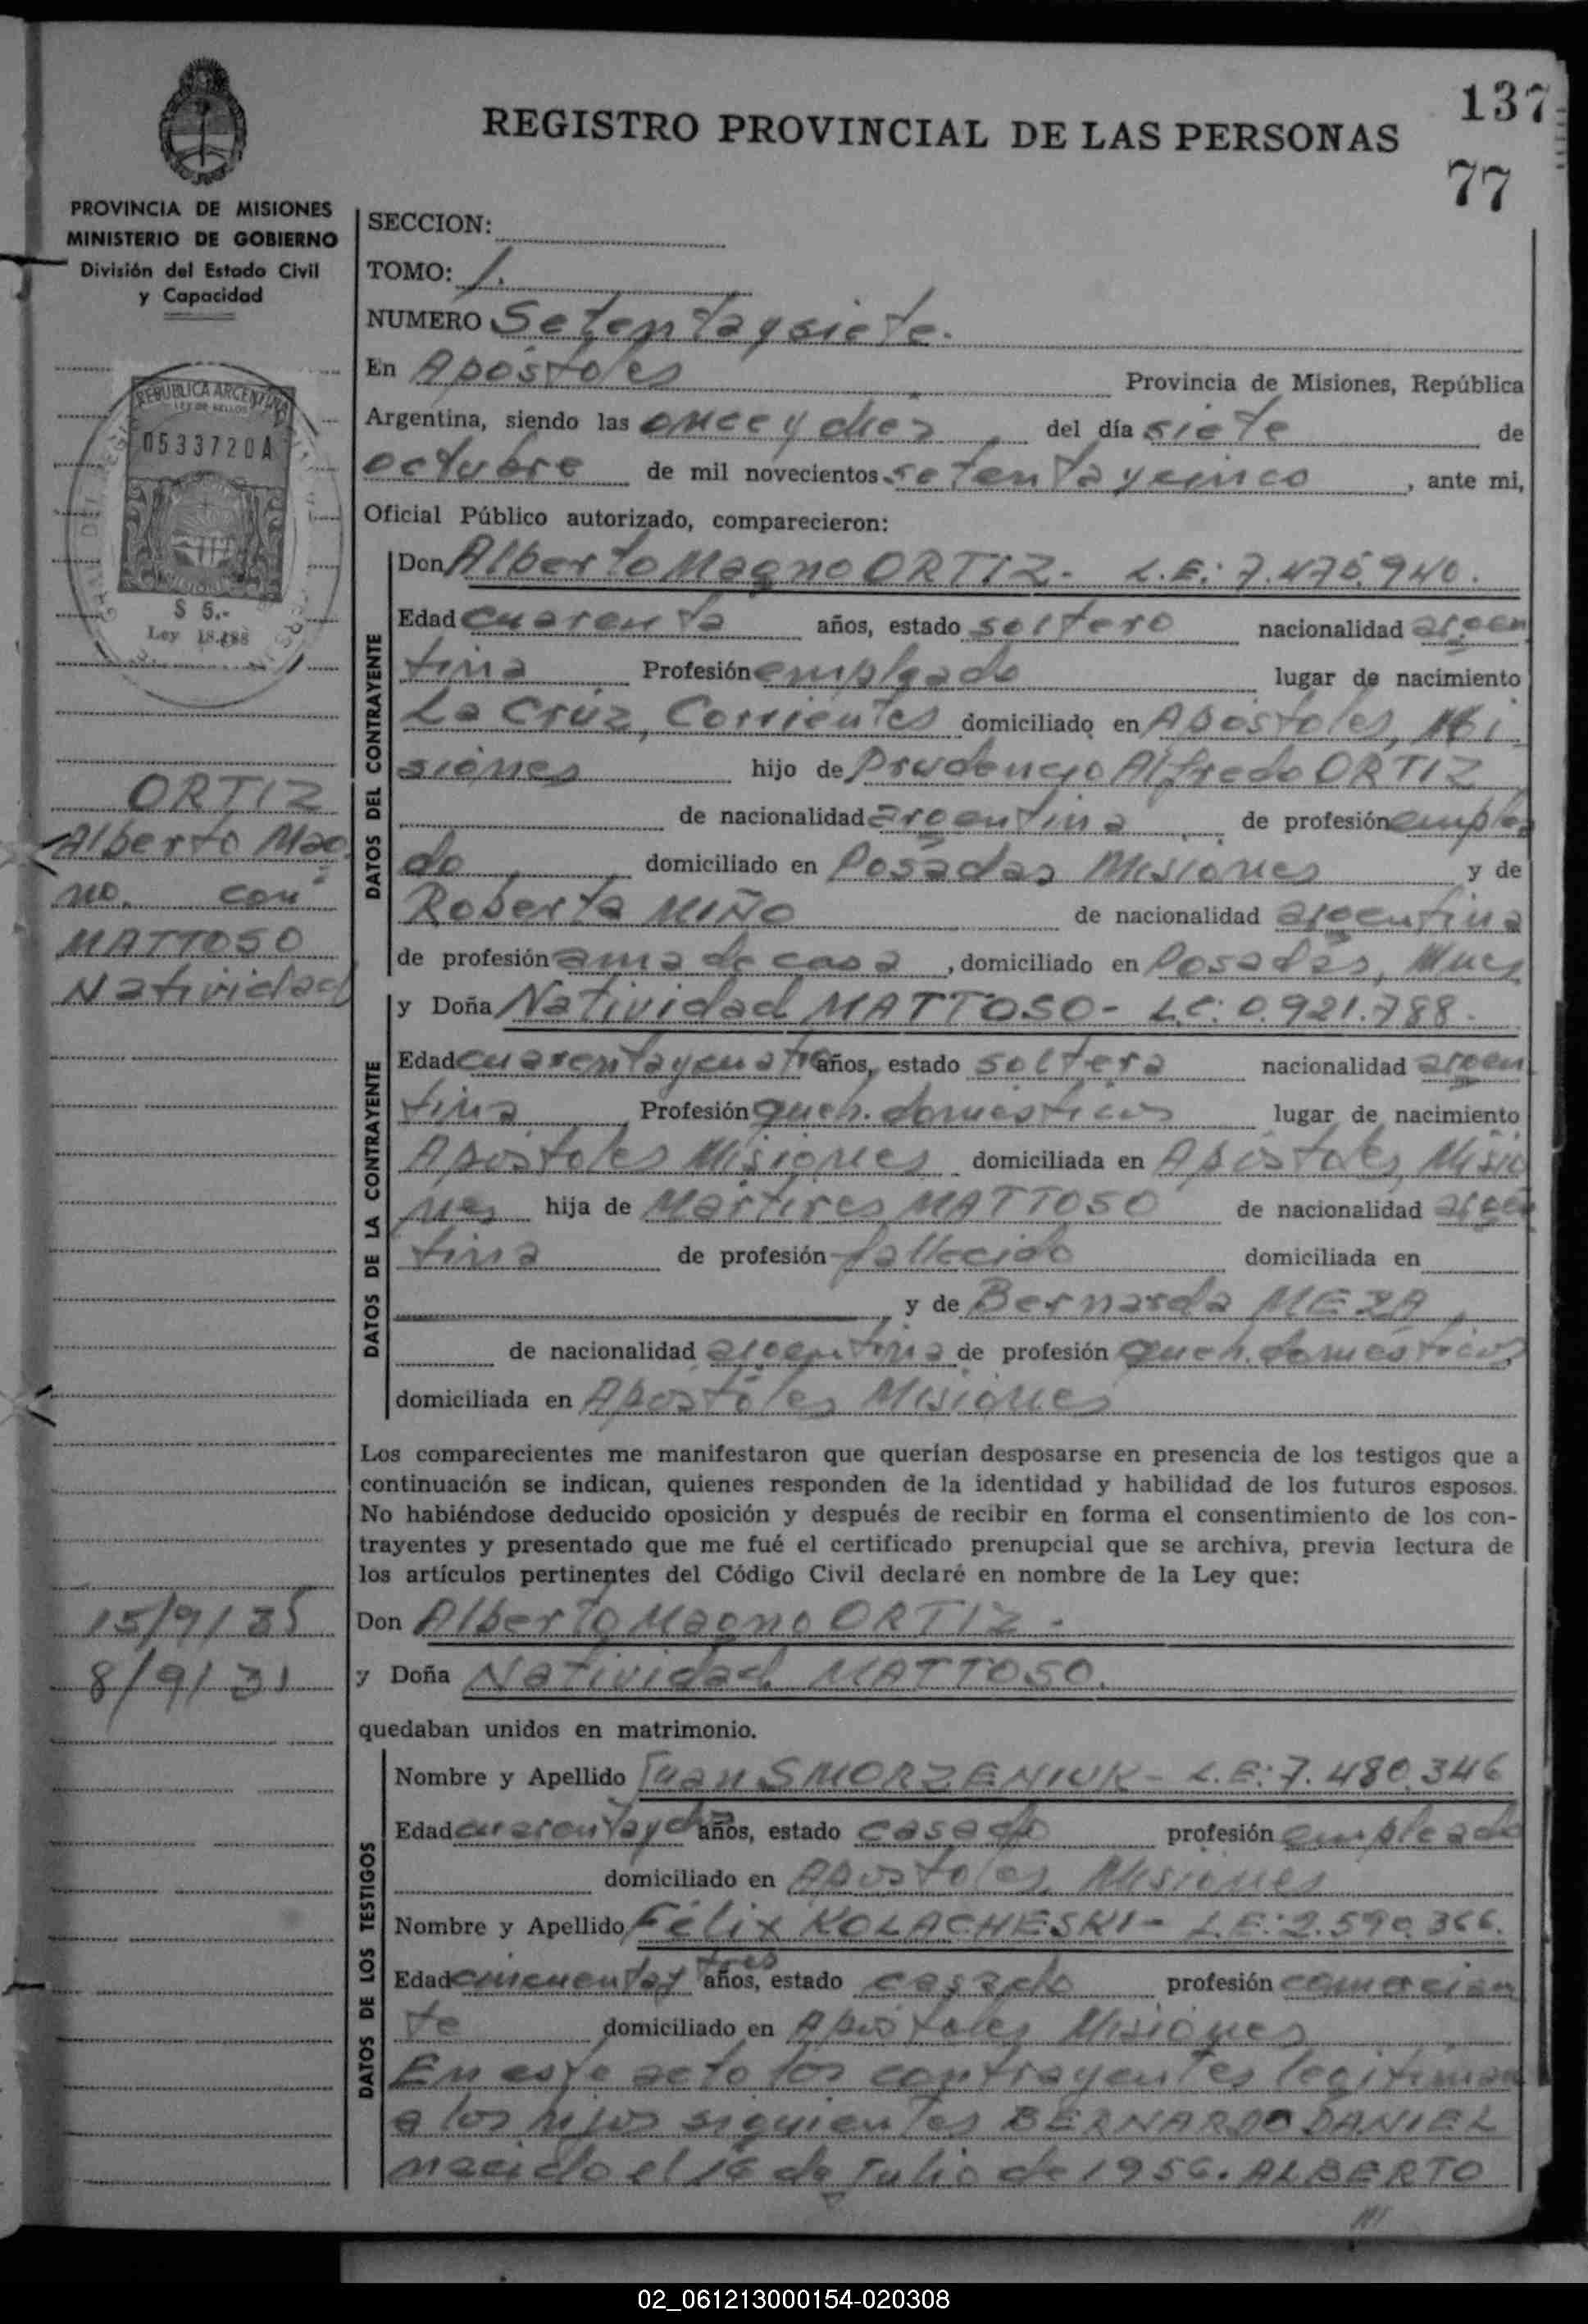 137
REGISTRO PROVINCIAL DE LAS PERSONAS
77
PROVINCIA DE MISIONES
MINISTERIO DE GOBIERNO
División del Estado Civil
y Capacidad
REPUBLICA ARGENTINA
LEY DE SELLOS
0533720A
$ 5.-
Ley 18.188
ORTIZ
Alberto Mag
no. con
MATTOSO
Natividad
15/9/35
8/9/31
SECCION:
TOMO: 1.
NUMERO Setenta y siete.
En Apóstoles Provincia de Misiones, República
Argentina, siendo las once y diez del día siete de
octubre de mil novecientos setenta y cinco, ante mi,
Oficial Público autorizado, comparecieron:
DATOS DEL CONTRAYENTE
Don Alberto Magno ORTIZ- L.E: 7.475.940.
Edad cuarenta años, estado soltero nacionalidad argen
tina Profesión empleado lugar de nacimiento
La Cruz, Corrientes domiciliado en Apóstoles, Mi
siones hijo de Prudencio Alfredo ORTIZ
de nacionalidad argentina de profesión emplea
do domiciliado en Posadas Misiones y de
Roberta MIÑO de nacionalidad argentina
de profesión ama de casa, domiciliado en Posadas,
DATOS DE LA CONTRAYENTE
y Doña Natividad MATTOSO- L.C: 0.921.788.
Edad cuarenta y cuatro años, estado soltera nacionalidad argen
tina Profesión queh. domésticos lugar de nacimiento
Apóstoles Misiones domiciliada en Apóstoles, Misio
nes hija de Martires MATTOSO de nacionalidad argen
tina de profesión fallecido domiciliada en
y de Bernarda MEZA
de nacionalidad argentina de profesión queh. domésticos
domiciliada en Apóstoles Misiones
Los comparecientes me manifestaron que querían desposarse en presencia de los testigos que a
continuación se indican, quienes responden de la identidad y habilidad de los futuros esposos.
No habiéndose deducido oposición y después de recibir en forma el consentimiento de los con-
trayentes y presentado que me fué el certificado prenupcial que se archiva, previa lectura de
los artículos pertinentes del Código Civil declaré en nombre de la Ley que:
Don Alberto Magno ORTIZ-
y Doña Natividad MATTOSO.
quedaban unidos en matrimonio.
DATOS DE LOS TESTIGOS
Nombre y Apellido Juan SMORZENIUK- L.E: 7.480.346
Edad cuarenta y años, estado casado profesión empleado
domiciliado en Apóstoles Misiones
Nombre y Apellido Félix KOLACHESKI- L.E: 2.590.366.
Edad cincuenta y tres años, estado casado profesión comercian
te domiciliado en Apóstoles Misiones
En este acto los contrayentes legitiman
a los hijos siguientes BERNARDO DANIEL
nacido el 16 de Julio de 1956. ALBERTO
02_061213000154-020308